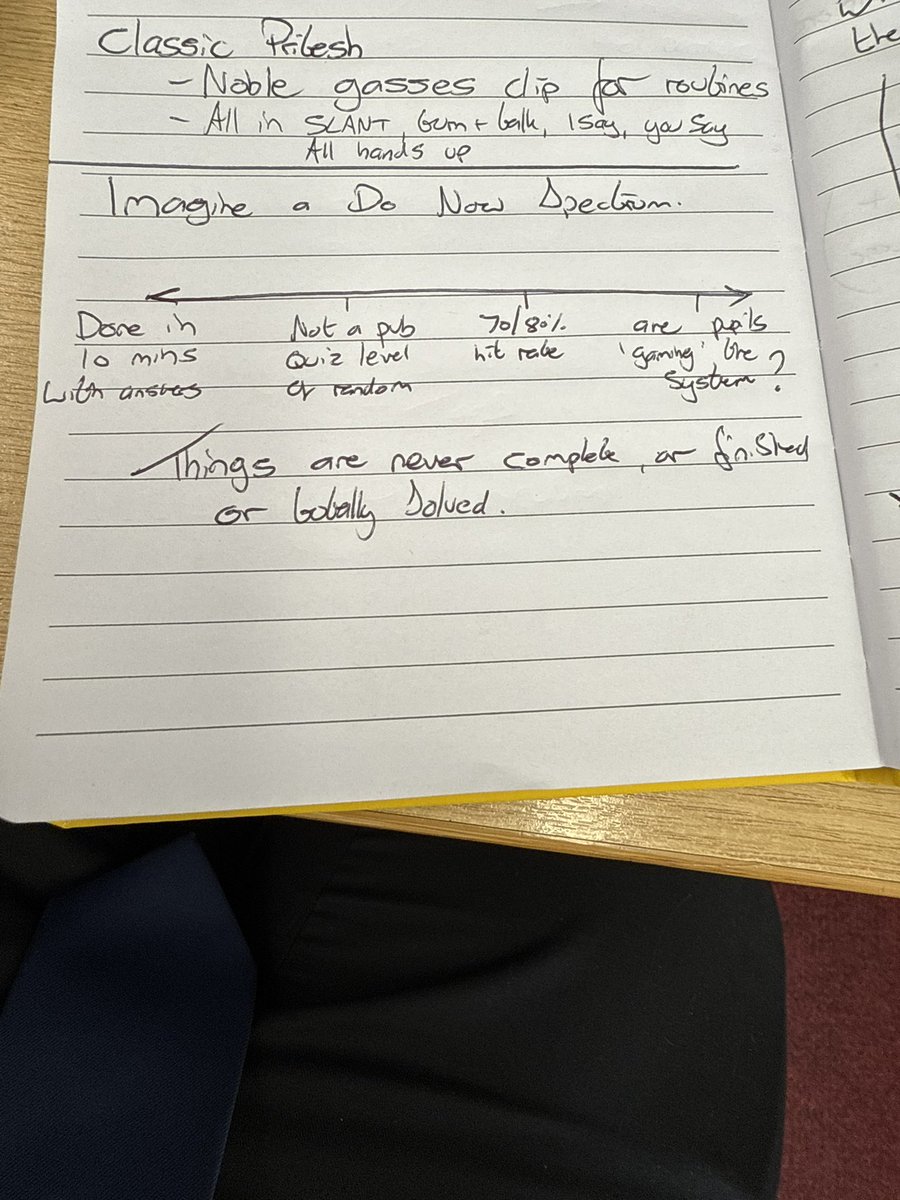 Classic Pritesh
- Noble gasses clip for routines
- All in SLANT, turn + talk, I say, you say
All hands up
Imagine a Do Now Spectrum.
Done in
10 mins
with answers
Not a pub
Quiz level
of random
70/80%
hit rate
are pupils
'gaming' the
system?
Things are never complete, or finished
or totally solved.
the